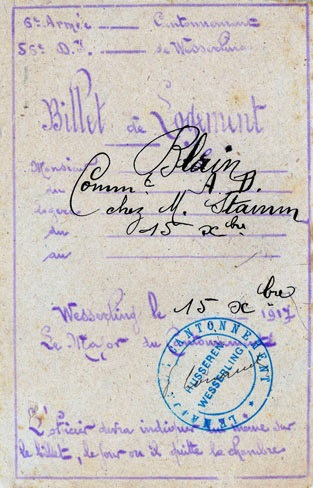 6e Armée — Cantonnement
55e D.I. — de Wesserling
Billet de Logement
Monsieur Blain
du Commt A D.
logera chez M. Stamm
du 15 Xbre
au
Wesserling le 15 Xbre 1917
Le Major du Cantonnement
CANTONNEMENT
HUSSEREN
WESSERLING
L'officier devra indiquer lui même sur
le billet, le jour où il quitte la chambre